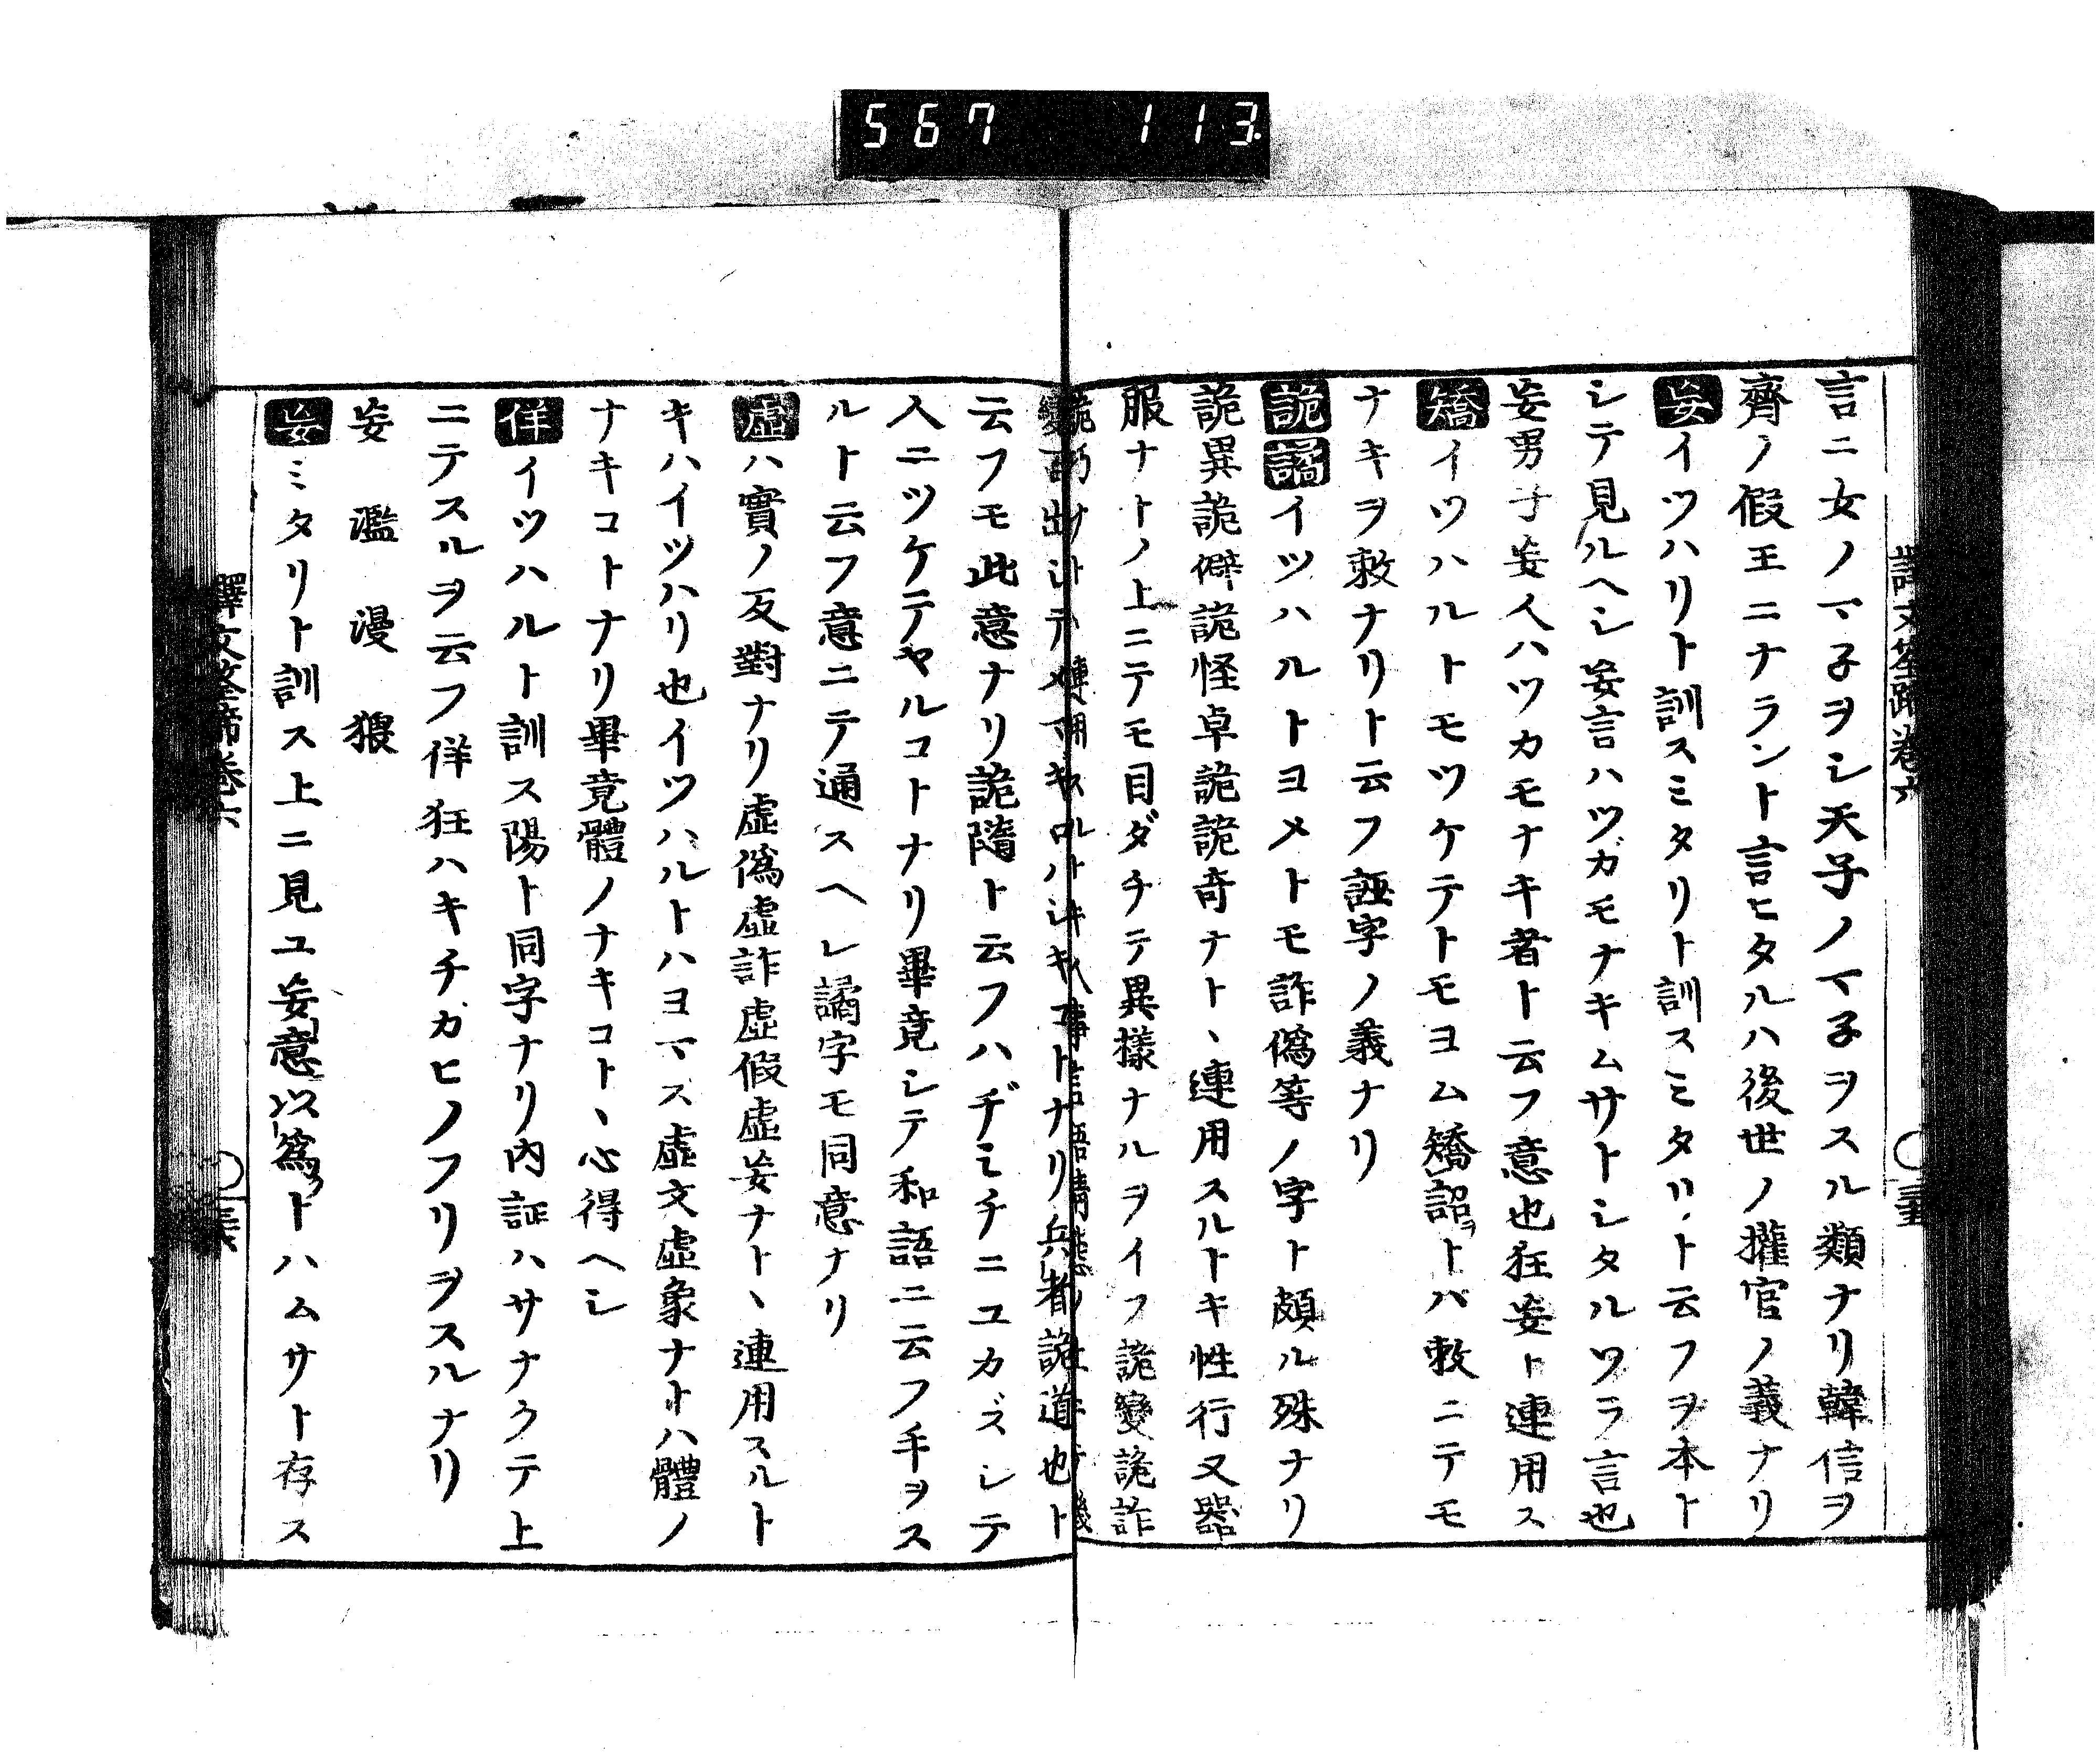 567 113
言ニ女ノマ子ヲシ天子ノマ子ヲスル類ナリ韓信ヲ
齊ノ假王ニナラント言ヒタルハ後世ノ攉官ノ義ナリ
妄イツハリト訓スミタリト訓スミタリト云フヲ本ト
シテ見ルヘシ妄言ハツガモナキムサトシタルツラ言也
妄男子妄人ハツカモナキ者ト云フ意也狂妄ト連用ス
矯イツハルトモツケテトモヨム矯詔トハ敕ニテモ
ナキヲ敕ナリト云フ誣字ノ義ナリ
詭譎イツハルトヨメトモ詐僞等ノ字ト頗ル殊ナリ
詭異詭僻詭怪卓詭詭奇ナト丶連用スルトキ性行又器
服ナトノ上ニテモ目ダチテ異樣ナルヲイフ詭變詭詐
キコトナリ兵者詭道也ト
云フモ此意ナリ詭隨ト云フハヂミチニユカズシテ
人ニツケテヤルコトナリ畢竟シテ和語ニ云フ手ヲス
ルト云フ意ニテ通スヘシ譎字モ同意ナリ
虛ハ實ノ反對ナリ虛僞虛詐虛假虛妄ナト丶連用スルト
キハイツハリ也イツハルトハヨマス虛文虛象ナトハ體ノ
ナキコトナリ畢竟體ノナキコト丶心得ヘシ
佯イツハルト訓ス陽ト同字ナリ内証ハサナクテ上
ニテスルヲ云フ佯狂ハキチガヒノフリヲスルナリ
妄 濫 漫 猥
妄ミタリト訓ス上ニ見ユ妄意以爲トハムサト存ス
譯文筌蹄卷六